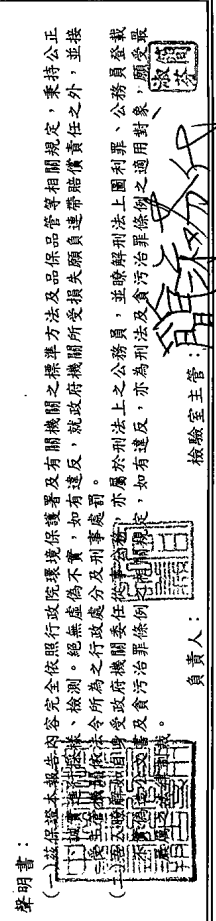 聲明書：
(一)茲保證本報告內容完全依照行政院環境保護署及有關機關之標準方法及品保品管等相關規定，秉持公正
、誠實進行採樣、檢測。絕無虛偽不實，如有違反，就政府機關所受損失願負連帶賠償責任之外，並接
受主管機關依法令所為之行政處分及刑事處罰。
(二)吾人瞭解如自身受政府機關委任從事公務，亦屬於刑法上之公務員，並瞭解刑法上圖利罪、公務員登載
不實偽造公文書及貪污治罪條例之相關規定，如有違反，亦為刑法及貪污治罪條例之適用對象，願受最
負責人：
檢驗室主管：